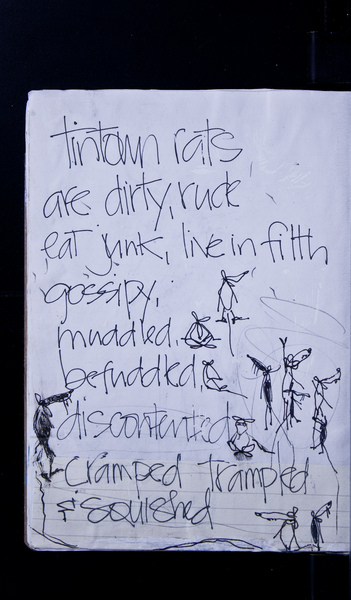 tintown rats
are dirty, rude
eat junk, live in filth
gossipy,
muddled,
befuddled,
discontented
cramped trampled
& squished